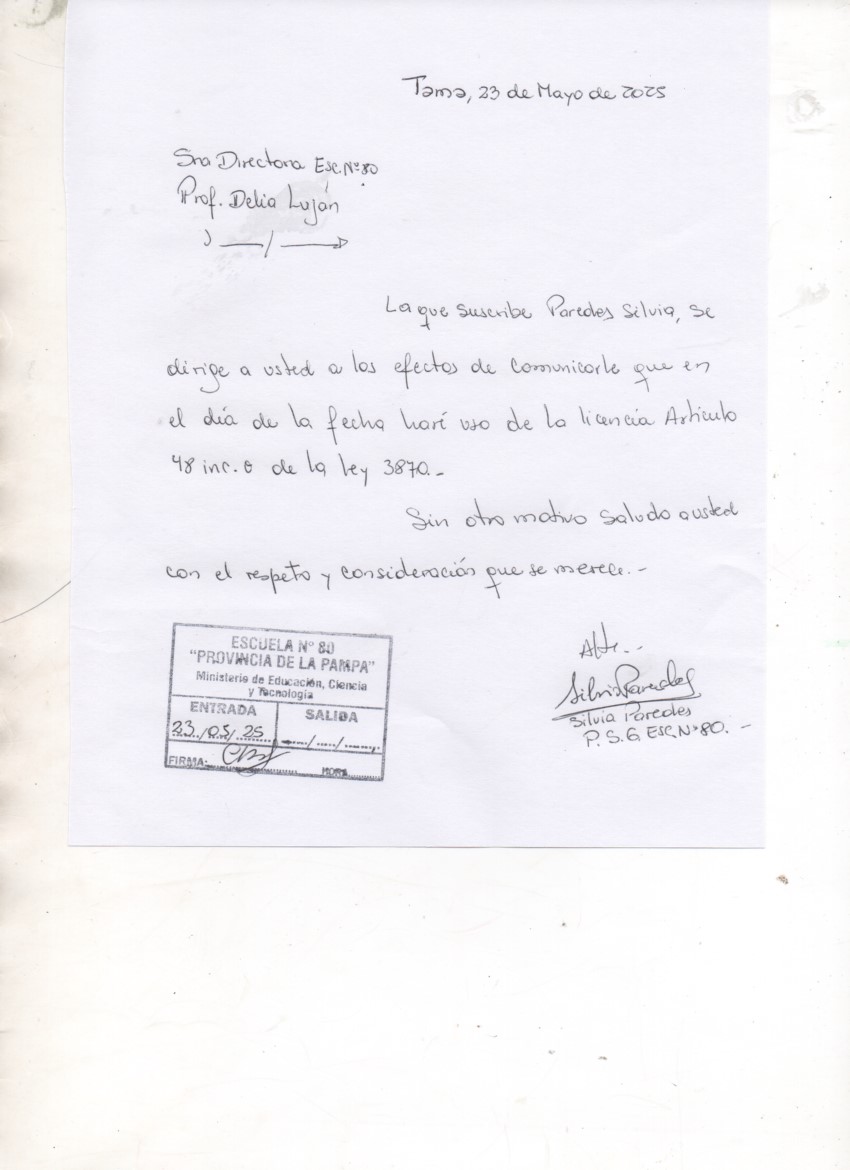 Tama, 23 de Mayo de 2025
Sra Directora Esc. N° 80
Prof. Delia Luján
La que suscribe Paredes Silvia, se
dirige a usted a los efectos de comunicarle que en
el día de la fecha haré uso de la licencia Artículo
48 inc. o de la ley 3870.-
Sin otro motivo saludo a usted
con el respeto y consideración que se merece.-
Atte..
Silvia Paredes
Silvia Paredes
P. S. G. Esc. N° 80. -
ESCUELA Nº 80
"PROVINCIA DE LA PAMPA"
Ministerio de Educación, Ciencia
y Tecnología
ENTRADA SALIDA
23/05/25
FIRMA: HORA